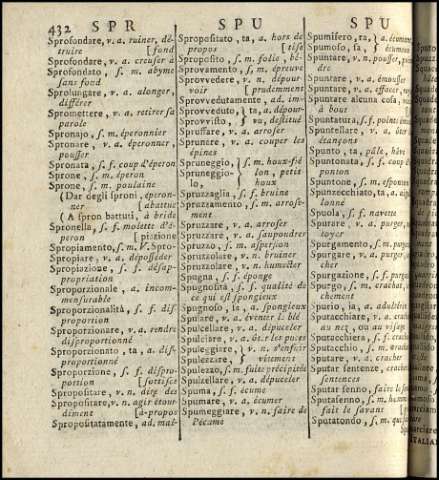 432 SPR SPU SPU
Sprofondare, v. a. ruiner, dé-
truire [fond
Sprofondare, v. a. creuser à
Sprofondato, s. m. abyme
sans fond
Sprolungare, v. a. alonger,
différer
Spromettere, v. a. retirer sa
parole
Spronajo, s. m. éperonnier
Spronare, v. a. éperonner,
pousser
Spronata, s. f. coup d'éperon
Sprone, s. m. éperon
Sprone, s. m. poulaine
(Dar degli sproni, éperon-
ner [abattue
(A spron battuti, à bride
Spronella, s. f. molette d'é-
peron [piazione
Spropiamento, s. m. V. Spro-
Spropiare, v. a. déposséder
Spropiazione, s. f. désap-
propriation
Sproporzionale, a. incom-
mensurable
Sproporzionalità, s. f. dis-
proportion
Sproporzionare, v. a. rendre
disproportionné
Sproporzionato, ta, a. dis-
proportionné
Sproporzione, s. f. dispro-
portion [sottises
Spropositare, v. n. dire des
Spropositare, v. n. agir étour
diment [à-propos
Spropositatamente, ad. mal-
Spropositato, ta, a. hors de
propos [tise
Sproposito, s. m. folie, bê-
Sprovamento, s. m. épreuve
Sprovvedere, v. n. dépour-
voir [prudemment
Sprovvedutamente, ad. im-
Sprovveduto, ta, a. dépour-
Sprovvisto, s vu, destitué
Spruffare, v. a. arroser
Sprunare, v. a. couper les
épines
Spruneggio, s. m. houx-fré
Spruneggio- lon, petit
lo, houx
Spruzzaglia, s. f. bruine
Spruzzamento, s. m. arrose-
ment
Spruzzare, v. a. arroser
Spruzzare, v. a. saupoudrer
Spruzzo, s. m. aspersion
Spruzzolare, v. n. bruiner
Spruzzolare, v. a. humecter
Spugna, s. f. éponge
Spugnosità, s. f. qualité de
ce qui est spongieux
Spugnoso, ta, a. spongieux
Spulare, v. a. évenier le blé
Spulcellare, v. a. dépuceler
Spulciare, v. a. ôter les puces
Spuleggiare, v. n. s'enfuir
Spulezzare, vîtement
Spulezzo, s. m. fuite précipitée
Spulzellare, v. a. dépuceler
Spuma, s. f. écume
Spumare, v. a. écumer
Spumeggiare, v. n. faire de
l'écume
Spumifero, ta, a. écumant
Spumoso, sa, écumeux
Spuntare, v. n. pousser,
dre
Spuntare, v. a. émousser
Spuntare, v. a. effacer,
Spuntare alcuna cosa,
à bout
Spuntatura, s. f. pointe
Spuntellare, v. a. ôter
étançons
Spunto, ta, a. pâle,
Spuntonata, s. f. coup
ponton
Spuntone, s. m. esponton
Spunzecchiato, ta, a.
lonné
Spuola, s. f. navette
Spurare, v. a. purger,
toyer
Spurgamento, s. m. purge,
Spurgare, v. a. purger,
cher
Spurgazione, s. f. purge,
Spurgo, s. m. crachat,
chement
Spurio, ia, a. adultérin
Sputacchiare, v. a. cracher
au nez, ou au visage
Sputacchiera, s. f. crachoir
Sputacchio, s. m. crachat
Sputare, v. a. cracher
Sputar sentenze, cracher
sentences
Sputar senno, faire le
Sputasenno, s. m.
fait le savant
Sputatondo, s. m. qui